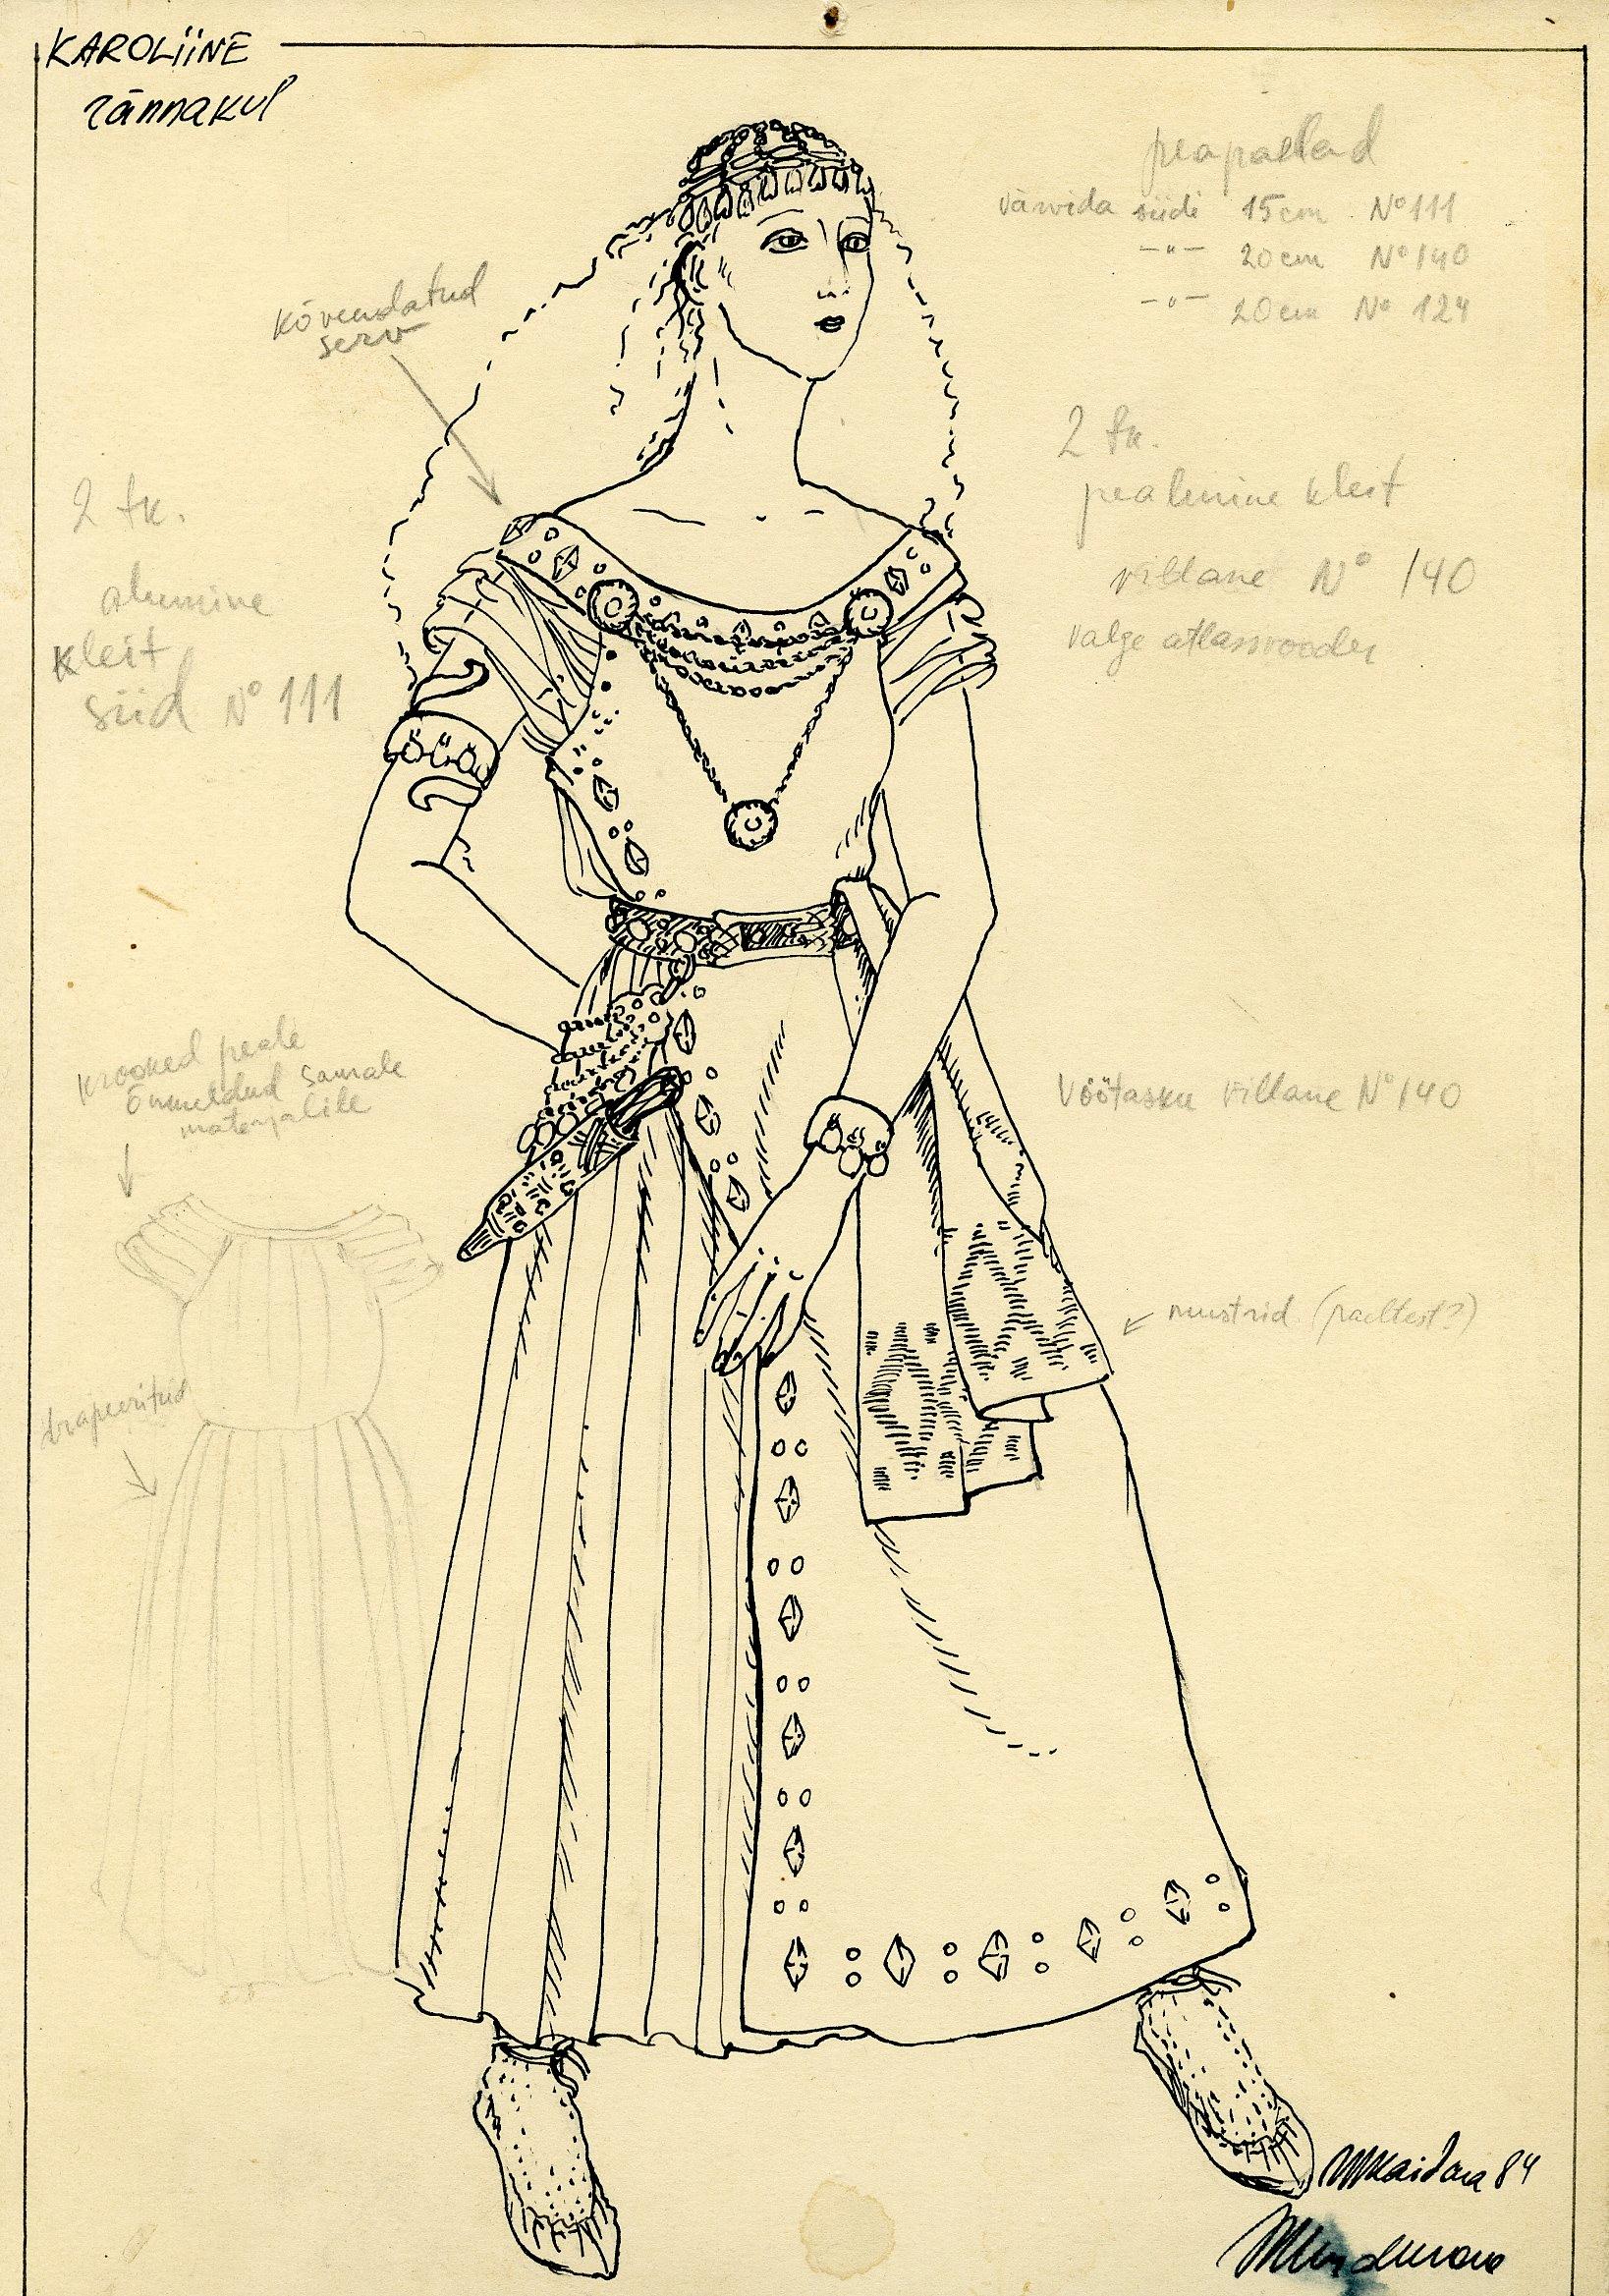 KAROLIINE
rännakul
peapaelad
värvida siidi 15cm N° 111
-"- 20cm N° 140
-"- 20cm N° 124
kõvendatud
serv
2 tk.
pealmine kleit
villane N° 140
valge atlassvooder
2 tk.
alumine
kleit
siid N° 111
krooked peale
õmmeldud samale
materjalile
Vöötasku villane N° 140
mustrid (paeltest?)
drapeeritud
84